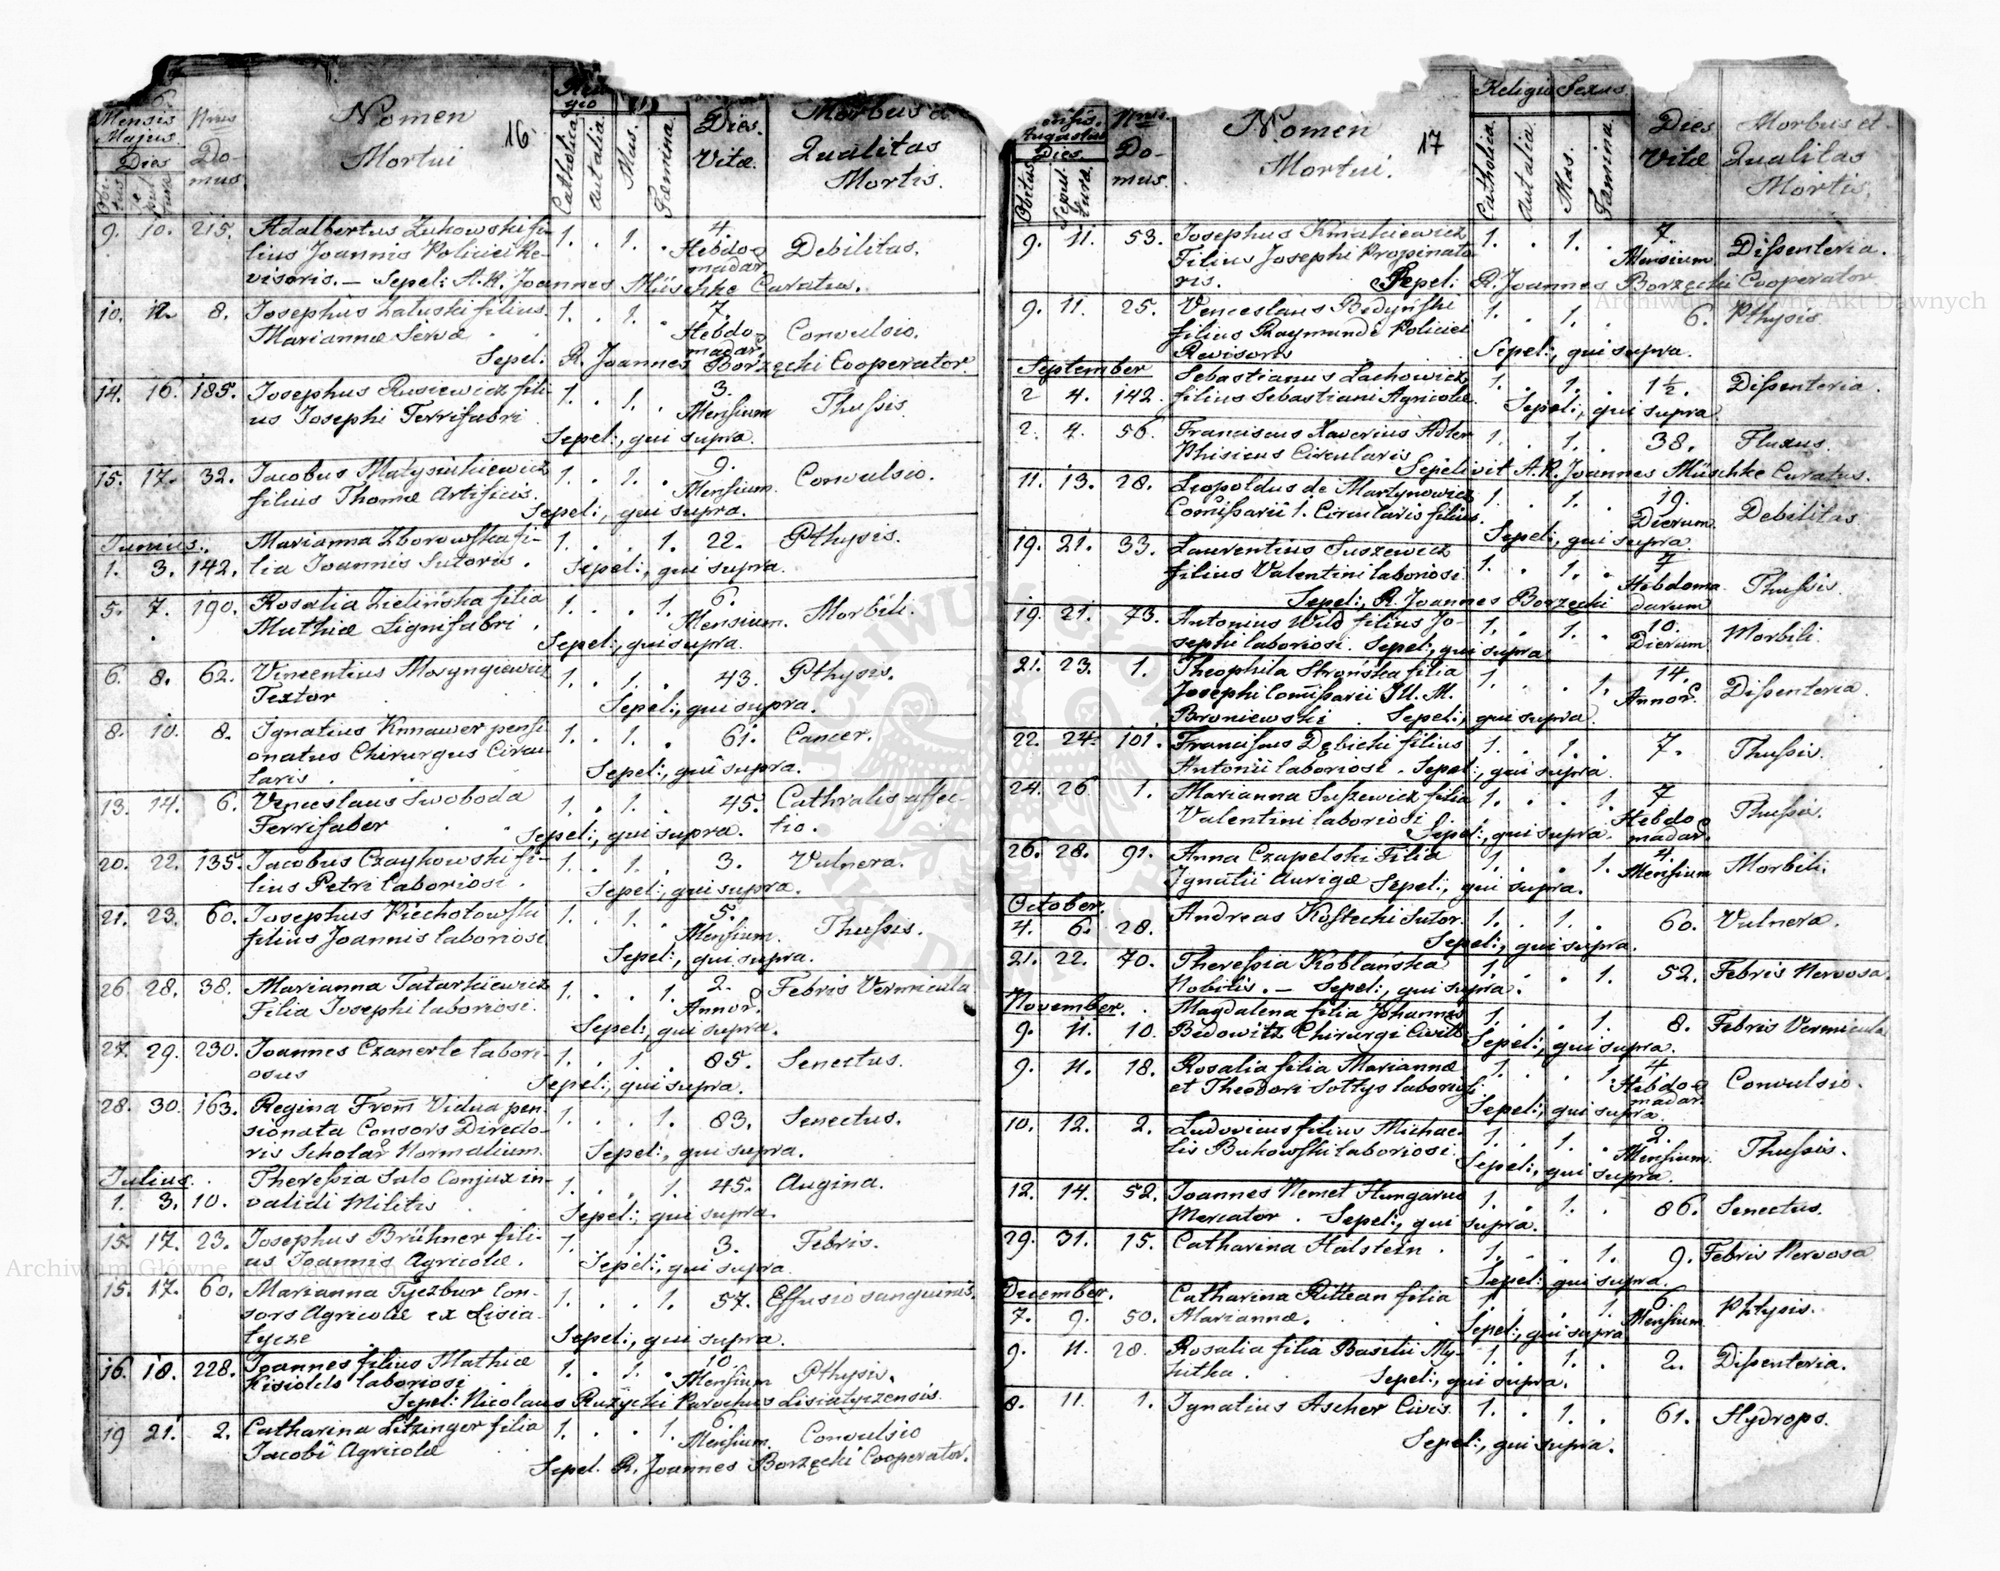 Mensis Majus.
Dies
Obitus Sepultura
Nrus Domus
Nomen Mortui
16
Catholica
Autalia
Mas.
Femina.
Dies. Vitæ.
Morbus et Qualitas Mortis.
9. 10. 215. Adalbertus Zukowski fi- 1. . 1. . 4. Hebdo- Debilitas.
lius Joannis Policiei Re- madar.
visoris. — Sepel: A.R. Joannes Müschke Curatus.
10. 12. 8. Josephus Zatuski filius 1. . 1. . 7. Hebdo- Convulsio.
Mariannæ Servæ madar.
Sepel. R. Joannes Borzęcki Cooperator.
14. 16. 185. Josephus Rusiewicz fili- 1. . 1. . 3. Thussis.
us Josephi Ferrifabri Mensium
Sepel:, qui supra.
15. 17. 32. Jacobus Matysiukiewicz 1. . 1. . 9. Convulsio.
filius Thomæ Artificis. Mensium.
Sepel:, qui supra.
Junius. Marianna Zborowska fi- 1. . . 1. 22. Pthysis.
1. 3. 142. lia Joannis Sutoris. Sepel:, qui supra.
5. 7. 190. Rosalia Zielińska filia 1. . . 1. 6. Morbili.
Mathiæ Lignifabri. Mensium.
Sepel:, qui supra.
6. 8. 62. Vincentius Moszyngiewicz 1. . 1. . 43. Pthysis.
Textor Sepel:, qui supra.
8. 10. 8. Ignatius Knnawer pensi- 1. . 1. . 61. Cancer.
onatus Chirurgus Circu-
laris. Sepel:, qui supra.
13. 14. 6. Venceslaus Swoboda 1. . 1. . 45. Cathralis affec-
Ferrifaber Sepel:, qui supra. tio.
20. 22. 135. Jacobus Czaykowski fi- 1. . 1. . 3. Vulnera.
lius Petri laboriosi. Sepel:, qui supra.
21. 23. 60. Josephus Piechotowski 1. . 1. . 5. Thussis.
filius Joannis laboriosi Mensium.
Sepel:, qui supra.
26. 28. 38. Marianna Tatarkiewicz 1. . . 1. 2. Febris Vermicula
Filia Josephi laboriosi. Annor.
Sepel:, qui supra.
27. 29. 230. Joannes Czanerle labori- 1. . 1. . 85. Senectus.
osus Sepel:, qui supra.
28. 30. 163. Regina From̅ Vidua pen- 1. . . 1. 83. Senectus.
sionata Consors Directo-
ris Scholar Normalium. Sepel:, qui supra.
Julius. Theressia Salo Conjux in- 1. . . 1. 45. Augina.
1. 3. 10. validi Militis Sepel:, qui supra.
15. 17. 23. Josephus Brühner fili- 1. . 1. . 3. Febris.
us Joannis Agricolæ. Sepel:, qui supra.
15. 17. 60. Marianna Tyczbur Con- 1. . . 1. 57. Effusio sanguinis.
sors Agricolæ ex Lisia-
tycze Sepel:, qui supra.
16. 18. 228. Joannes filius Mathiæ 1. . 1. . 10. Pthysis.
laboriosi Mensium
Sepel: Nicolaus Ružycki Parochus Lisiatyczensis.
19 21. 2. Catharina Litzinger filia 1. . . 1. 6. Convulsio
Jacobi Agricolæ Mensium.
Sepel. R. Joannes Borzęcki Cooperator.
Mensis. Augustus
Dies
Obitus Sepultura.
Nrus Domus.
Nomen Mortui.
17
Religio Sexus
Catholia.
Autalia.
Mas.
Famina.
Dies Vitæ
Morbus et Qualitas Mortis.
9. 11. 53. Josephus Kmakiewicz 1. . 1. . 7. Dissenteria.
Filius Josephi Propinato- Mensium
ris. Sepel: R. Joannes Borzęcki Cooperator
9. 11. 25. Venceslaus Bedyński 1. . 1. . 6. Pthysis
filius Raymundi Policiei
Revisoris Sepel:, qui supra.
September Sebastianus Lachowicz 1. . 1. . 1½. Dissenteria.
2 4. 142. filius Sebastiani Agricolæ. Sepel:, qui supra.
2. 4. 56. Franciscus Xawerius Adler 1. . 1. . 38. Fluxus.
Phisicus Circularis Sepelivit A.R. Joannes Müschke Curatus.
11. 13. 28. Leopoldus de Martynowicz 1. . 1. . 19. Debilitas
Com̅issarii 1. Circularis filius. Dierum.
Sepel:, qui supra.
19. 21. 33. Laurentius Suszewicz 1. . 1. . 7 Thussis.
filius Valentini laboriosi Hebdoma
Sepel:, R. Joannes Borzęcki darum
19. 21. 73. Antonius Wild filius Jo- 1. . 1. . 10. Morbili.
sephi laboriosi. Sepel:, qui supra Dierum
21. 23. 1. Theophila Strońska filia 1. . . 1. 14. Dissenteria.
Josephi Com̅issarii Ill. M. Annor.
Broniewski. Sepel:, qui supra.
22. 24. 101. Franciscus Dębicki filius 1. . 1. . 7. Thussis.
Antonii laboriosi. Sepel:, qui supra.
24. 26 1. Marianna Suszewicz filia 1. . . 1. 7 Thussis.
Valentini laboriosi Hebdo-
Sepel:, qui supra. madar.
26. 28. 91. Anna Czapelski Filia 1. . . 1. 4. Morbili.
Ignatii Aurigæ Sepel:, qui supra. Mensium
October. Andreas Kostecki Sutor. 1. . 1. . 60. Vulnera.
4. 6. 28. Sepel:, qui supra.
21. 22. 70. Theressia Koblańska 1. . . 1. 52. Febris Nervosa.
Nobilis. — Sepel:, qui supra.
November. Magdalena filia Johannis 1. . . 1. 8. Febris Vermicula
9. 11. 10. Bedowitz Chirurgi Civilis. Sepel:, qui supra.
9. 11. 18. Rosalia filia Mariannæ 1. . . 1. 4. Convulsio.
et Theodori Sottys laboriosi. Hebdo-
Sepel:, qui supra. madar.
10. 12. 2. Ludovicus filius Michae- 1. . 1. . 2. Thussis.
lis Bukowski laboriosi. Mensium.
Sepel:, qui supra.
12. 14. 52. Joannes Nemet Hungarus 1. . 1. . 86. Senectus.
Mercator. Sepel:, qui supra.
29. 31. 15. Catharina Halstein. 1. . . 1. 9. Febris Nervosa
Sepel:, qui supra.
December. Catharina Rittean filia 1. . . 1. 6. Phtysis.
7. 9. 50. Mariannæ. Mensium
Sepel:, qui supra
9. 11. 28. Rosalia filia Basilii My- 1. . 1. . 2. Dissenteria.
sutka. Sepel:, qui supra.
8. 11. 1. Ignatius Ascher Civis 1. . 1. . 61. Hydrops.
Sepel:, qui supra.
Archiwum Główne Akt Dawnych
Archiwum Główne Akt Dawnych